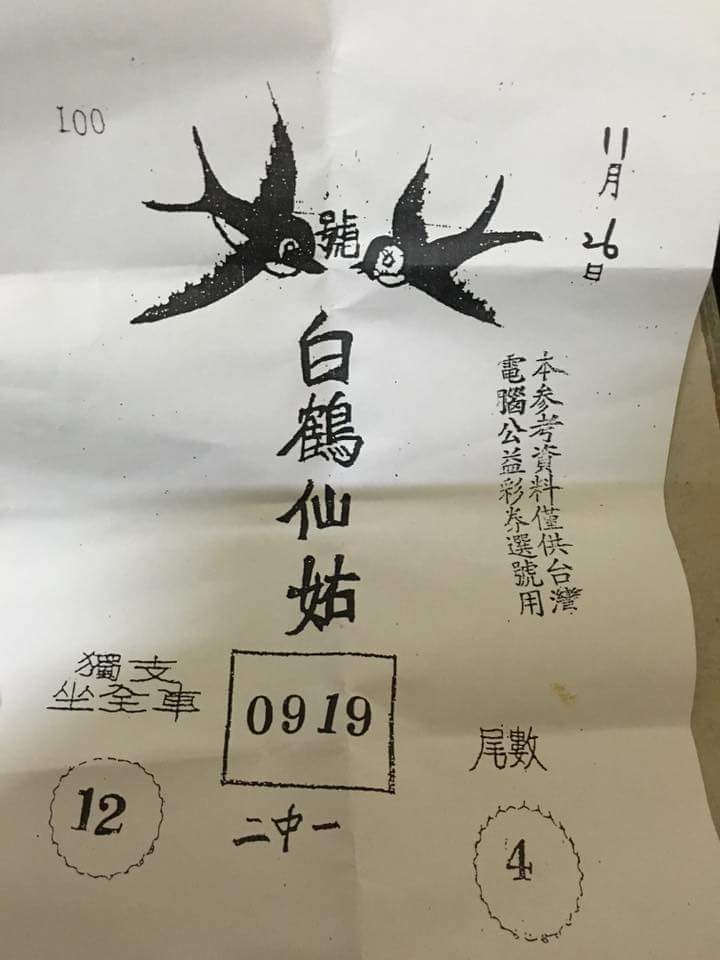 100
11月26日
號
白鶴仙姑
本參考資料僅供台灣
電腦公益彩券選號用
獨支
坐全車
12
0919
二中一
尾數
4